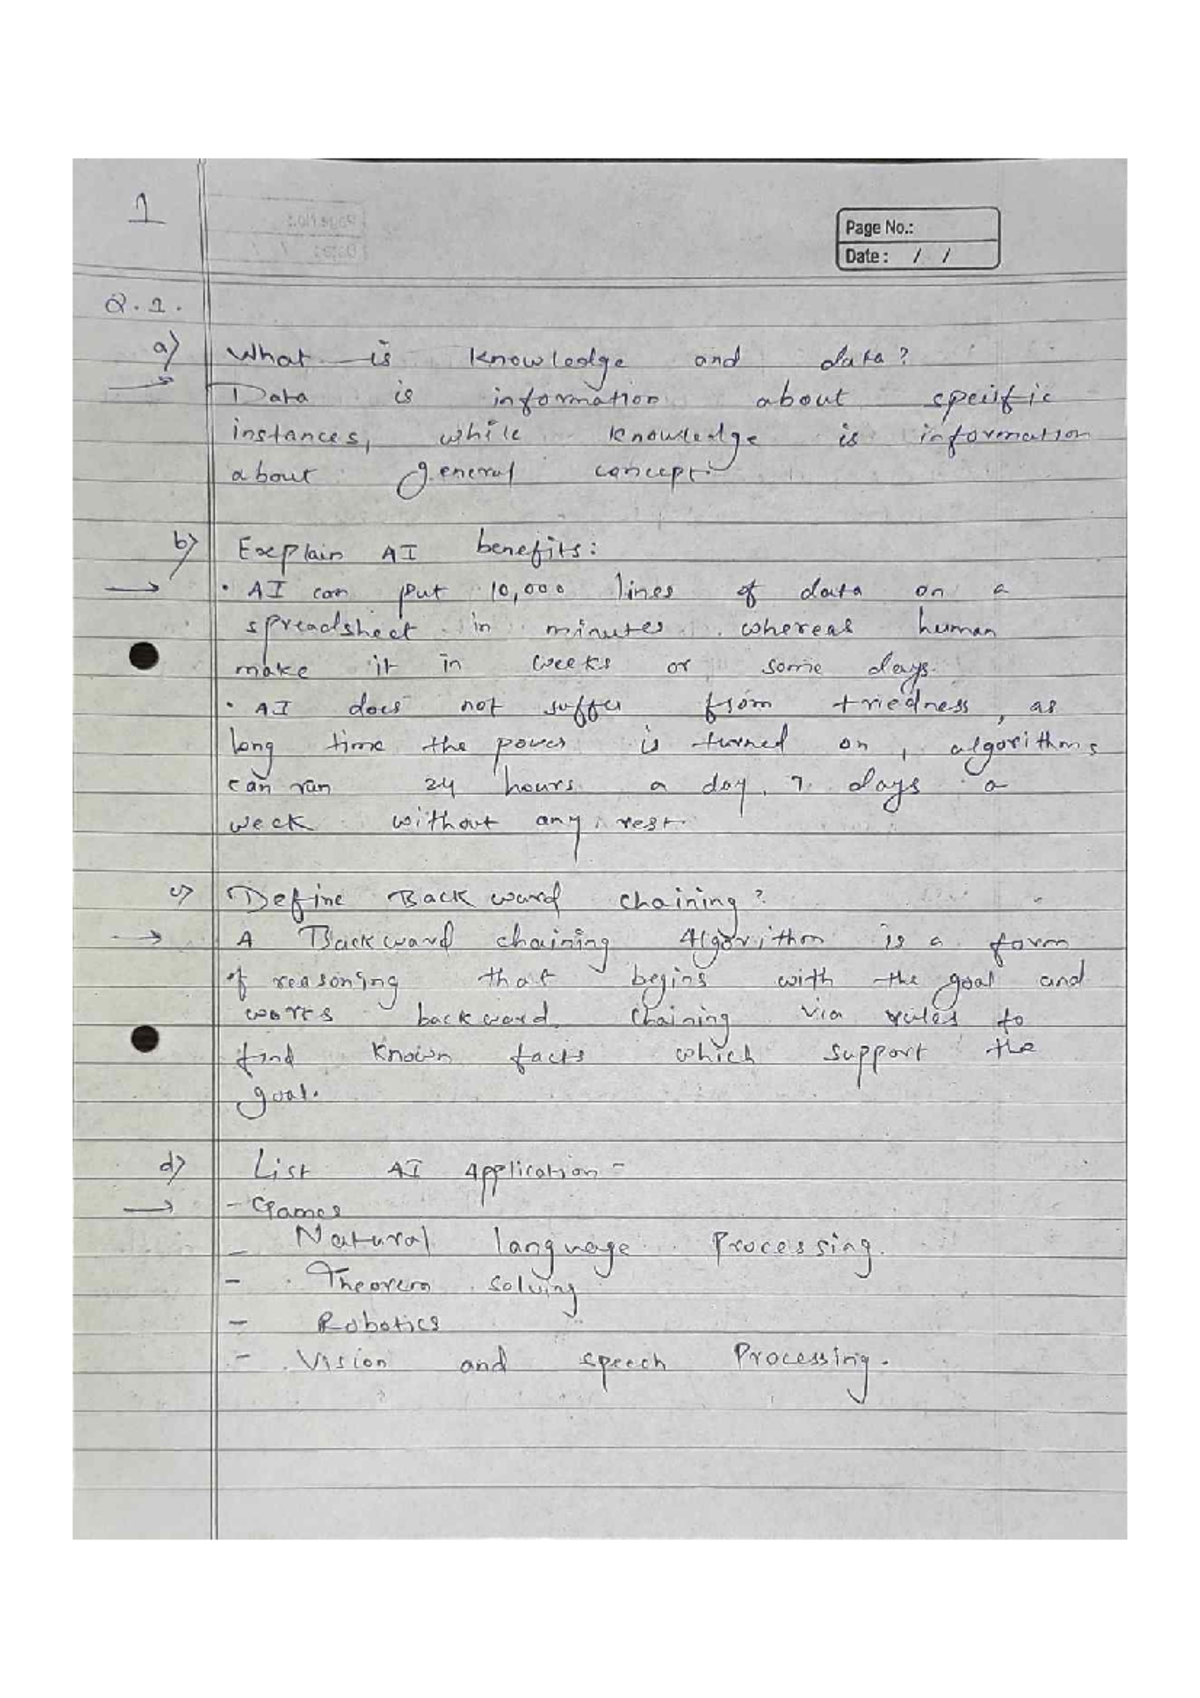 1
Page No.:
Date : / /
Q.1.
a) What is knowledge and data?
→ Data is information about specific
instances, while knowledge is information
about general concept.
b) Explain AI benefits:
→ • AI can put 10,000 lines of data on a
spreadsheet in minutes whereas human
make it in weeks or some days.
• AI does not suffer from triedness, as
long time the power is turned on, algorithms
can run 24 hours a day, 7 days a
week without any rest.
c) Define Backward chaining?
→ A Backward chaining Algorithm is a form
of reasoning that begins with the goal and
works backward, chaining via rules to
find known facts which support the
goal.
d) List AI Application -
→ - Games
- Natural language Processing.
- Theorem solving
- Robotics
- Vision and speech Processing.